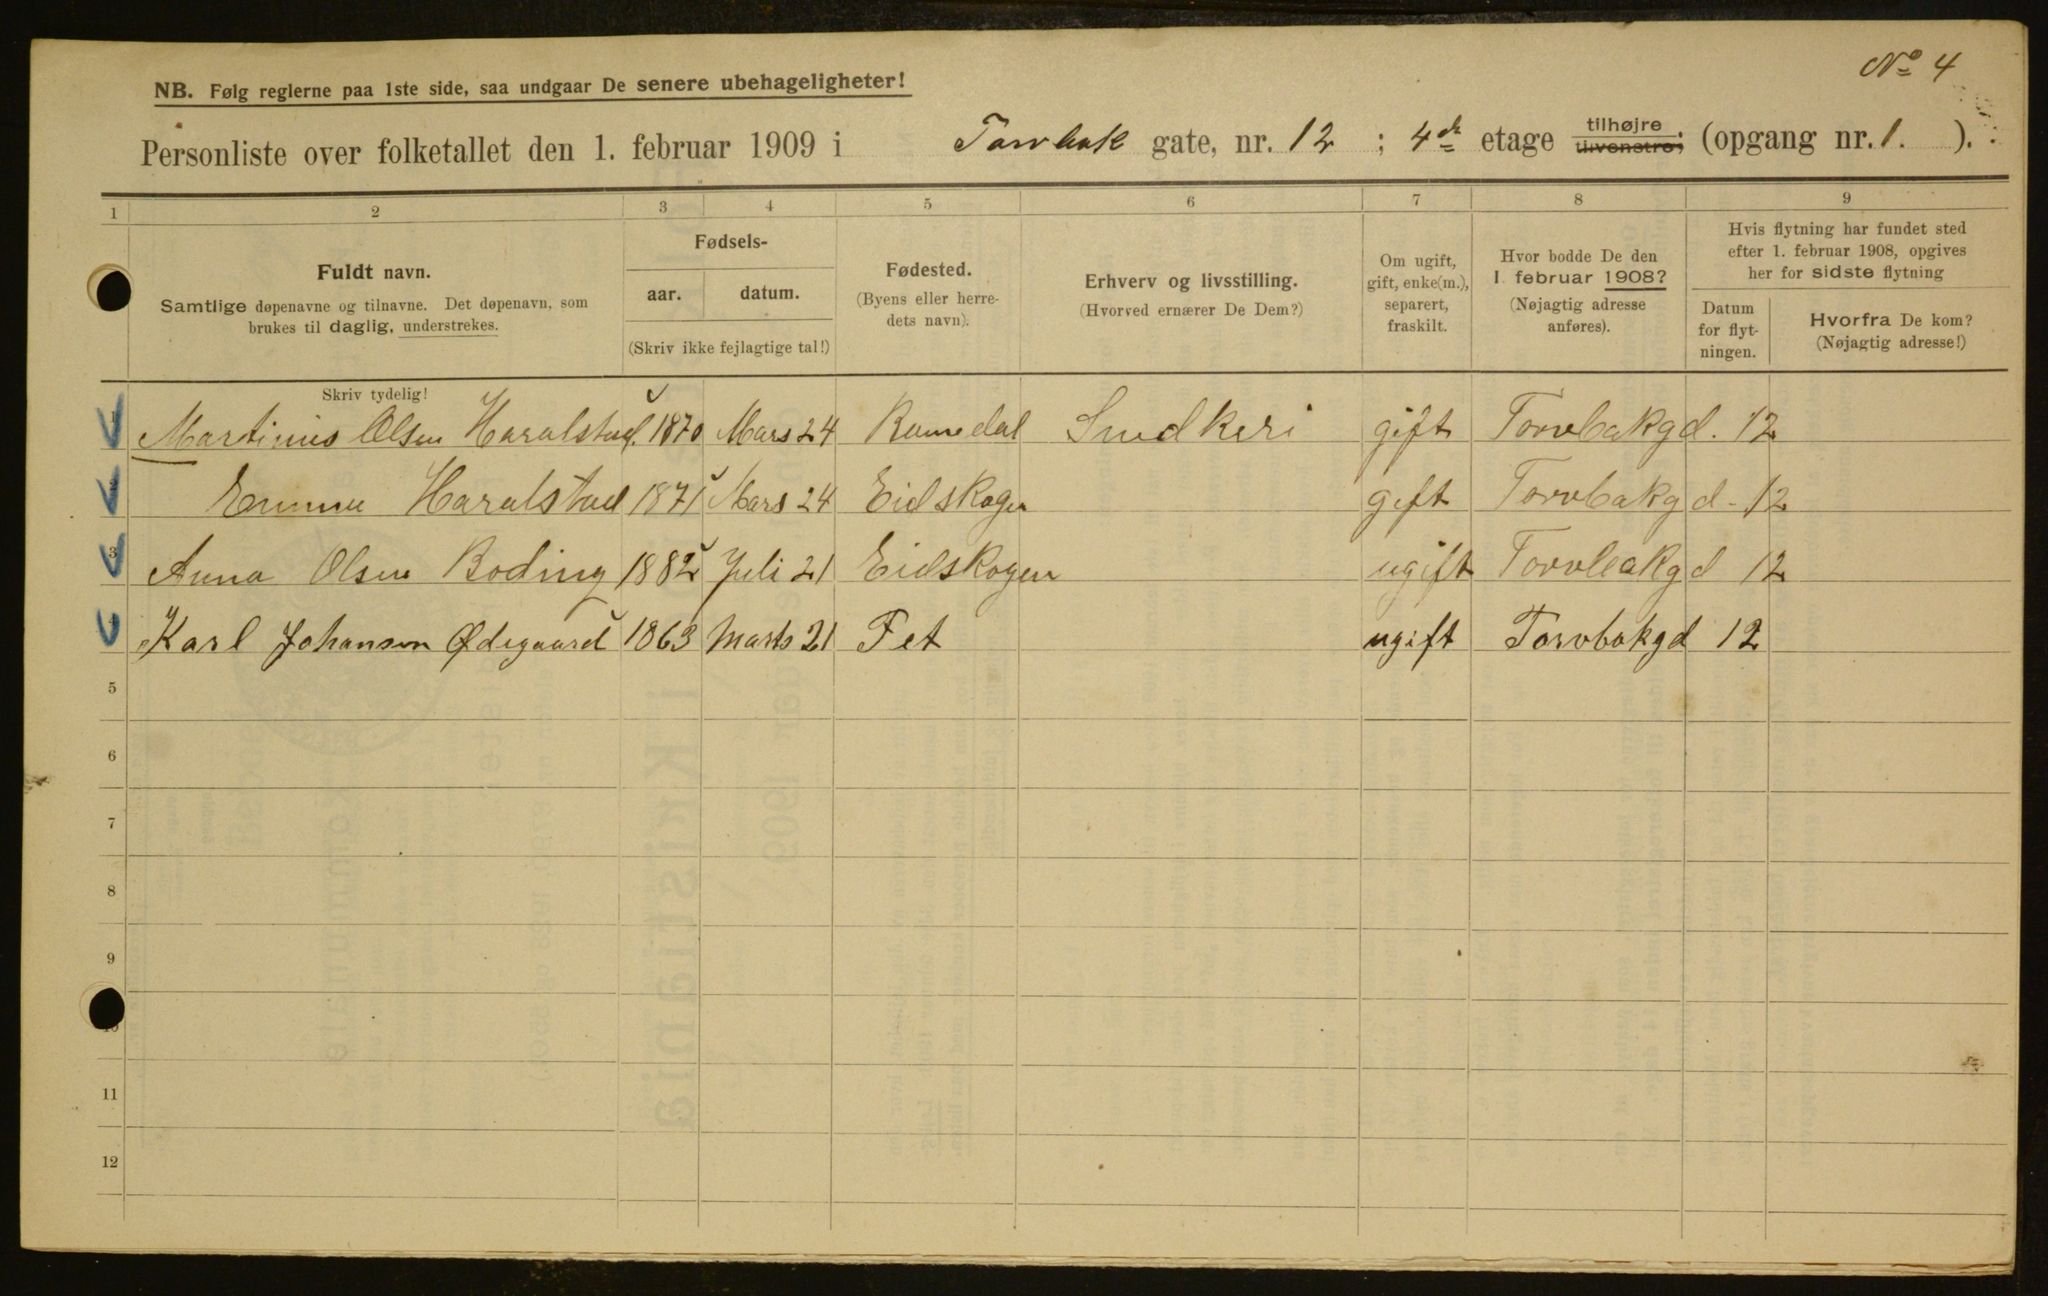 No 4
NB. Følg reglerne paa 1ste side, saa undgaar De senere ubehageligheter!
Personliste over folketallet den 1. februar 1909 i Torvbak gate, nr. 12 ; 4de etage tilhøjre tilvenstre; (opgang nr. 1. ).
1 2 3 4 5 6 7 8 9
Fuldt navn.
Samtlige døpenavne og tilnavne. Det døpenavn, som
brukes til daglig, understrekes.
Fødsels-
aar. datum.
(Skriv ikke fejlagtige tal!)
Fødested.
(Byens eller herre-
dets navn).
Erhverv og livsstilling.
(Hvorved ernærer De Dem?)
Om ugift,
gift, enke(m.),
separert,
fraskilt.
Hvor bodde De den
1. februar 1908?
(Nøjagtig adresse
anføres).
Hvis flytning har fundet sted
efter 1. februar 1908, opgives
her for sidste flytning
Datum
for flyt-
ningen.
Hvorfra De kom?
(Nøjagtig adresse!)
Skriv tydelig!
1 Martinius Olsen Haralstad. 1870 Mars 24 Romedal Smdkeri gift Torvbakgd. 12
2 Emma Haralstad 1871 Mars 24 Eidskogen gift Torvbakgd - 12
3 Anna Olsen Boding 1882 Juli 21 Eidskogen ugift Torvbakgd 12
4 Karl Johansen Ødegaard 1863 Marts 21 Fet ugift Torvbakgd 12
5
6
7
8
9
10
11
12